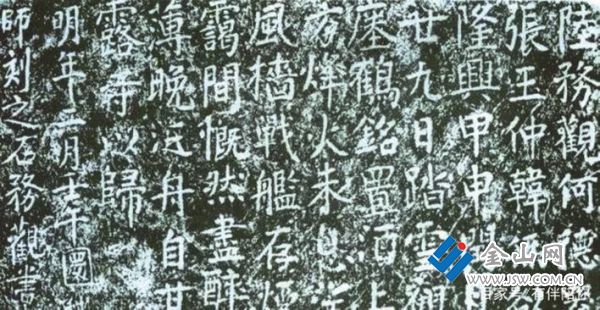 陸務觀何德
張玉仲韓
隆興甲申
廿九日踏雪觀
瘞鶴銘置酒上
方烽火未息望
風檣戰艦在煙
靄間慨然盡醉
薄晚泛舟自甘
露寺以歸
明年二月壬午圜
師刻之石務觀書
金山网
WWW.JSW.COM.CN
百家号/有伴陪你